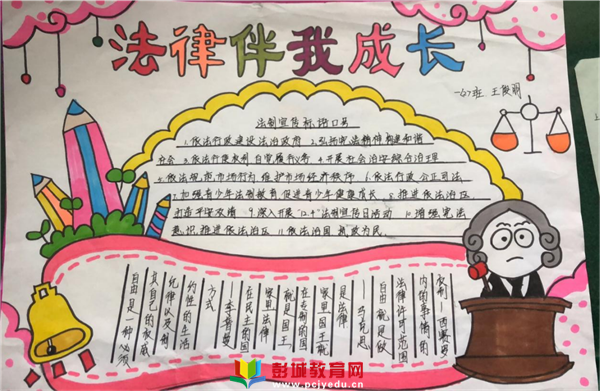 法律伴我成长
一(7)班 王
法制宣传标语口号
1.依法行政建设法治政府 2.弘扬宪法精神构建和谐
社会 3.依法行使权利自觉履行义务 4.开展社会治安综合治理
5.依法规范市场行为,维护市场经济秩序 6.依法行政公正司法
7.加强青少年法制教育,促进青少年健康成长 8.推进依法治区,
创造平安 9.深入开展"12.4"法制宣传日活动 10.增强宪法
意识,推进依法治区 11.依法治国 执政为民.
自由是一种必须
自己的权威
纪律以及制
约性的生活
方式
—李普曼
在民主的国
家里法律
就是国王
在专制的国
家里国王就
是法律
—马克思
自由就是做
法律许可范围
内的事情的
权利—西塞罗
彭城教育网
www.pcjyedu.cn